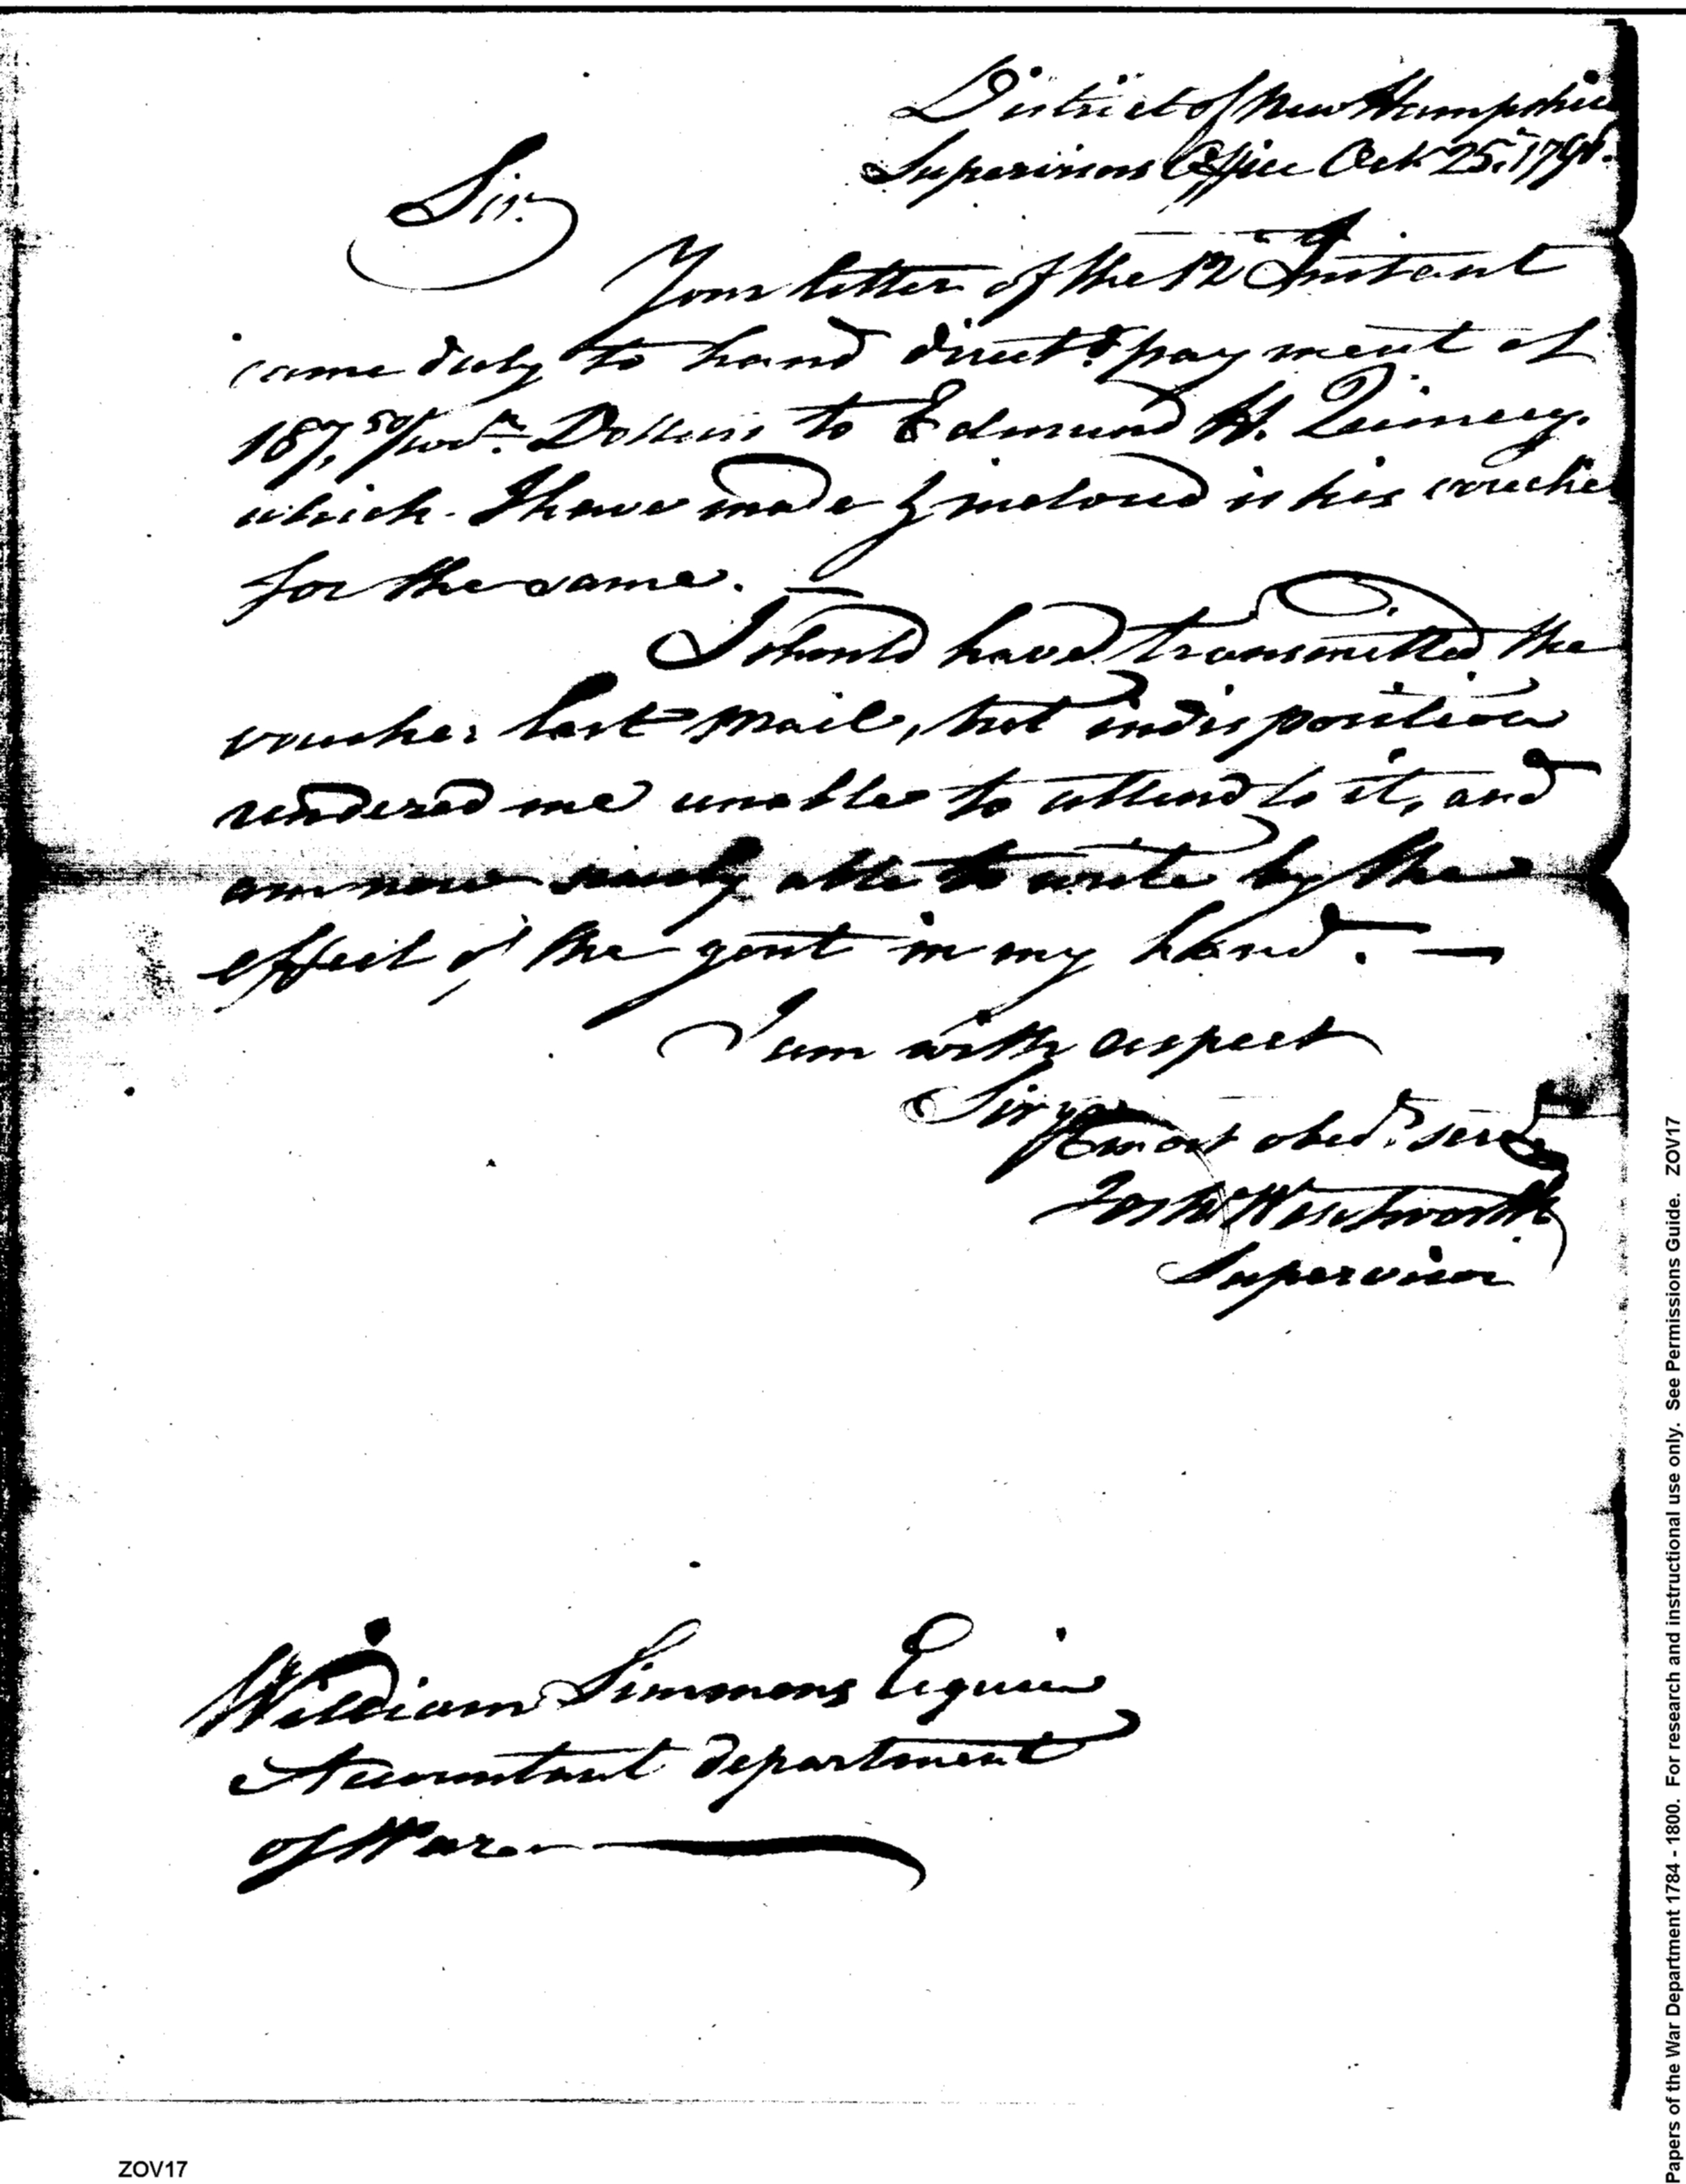 District of New Hampshire
Supervisors Office Oct 25. 1798.
Sir.
Your letter of the 12 Instant
came duly to hand direct.g payment of
187, 50/ Dollars to Edmund H. Quincy.
which I have made & inclosed is his vouche
for the same. —
I should have transmitted the
voucher last mail, but indisposition
rendered me unable to attend to it, and
am now scarcely able to write by the
effect of the gout in my hand. —
I am with respect
Sir yr
most obed.t serv
Josh Wentworth
Supervisor
William Simmons Esquire
Accountant department
of War
ZOV17
Papers of the War Department 1784 - 1800. For research and instructional use only. See Permissions Guide. ZOV17